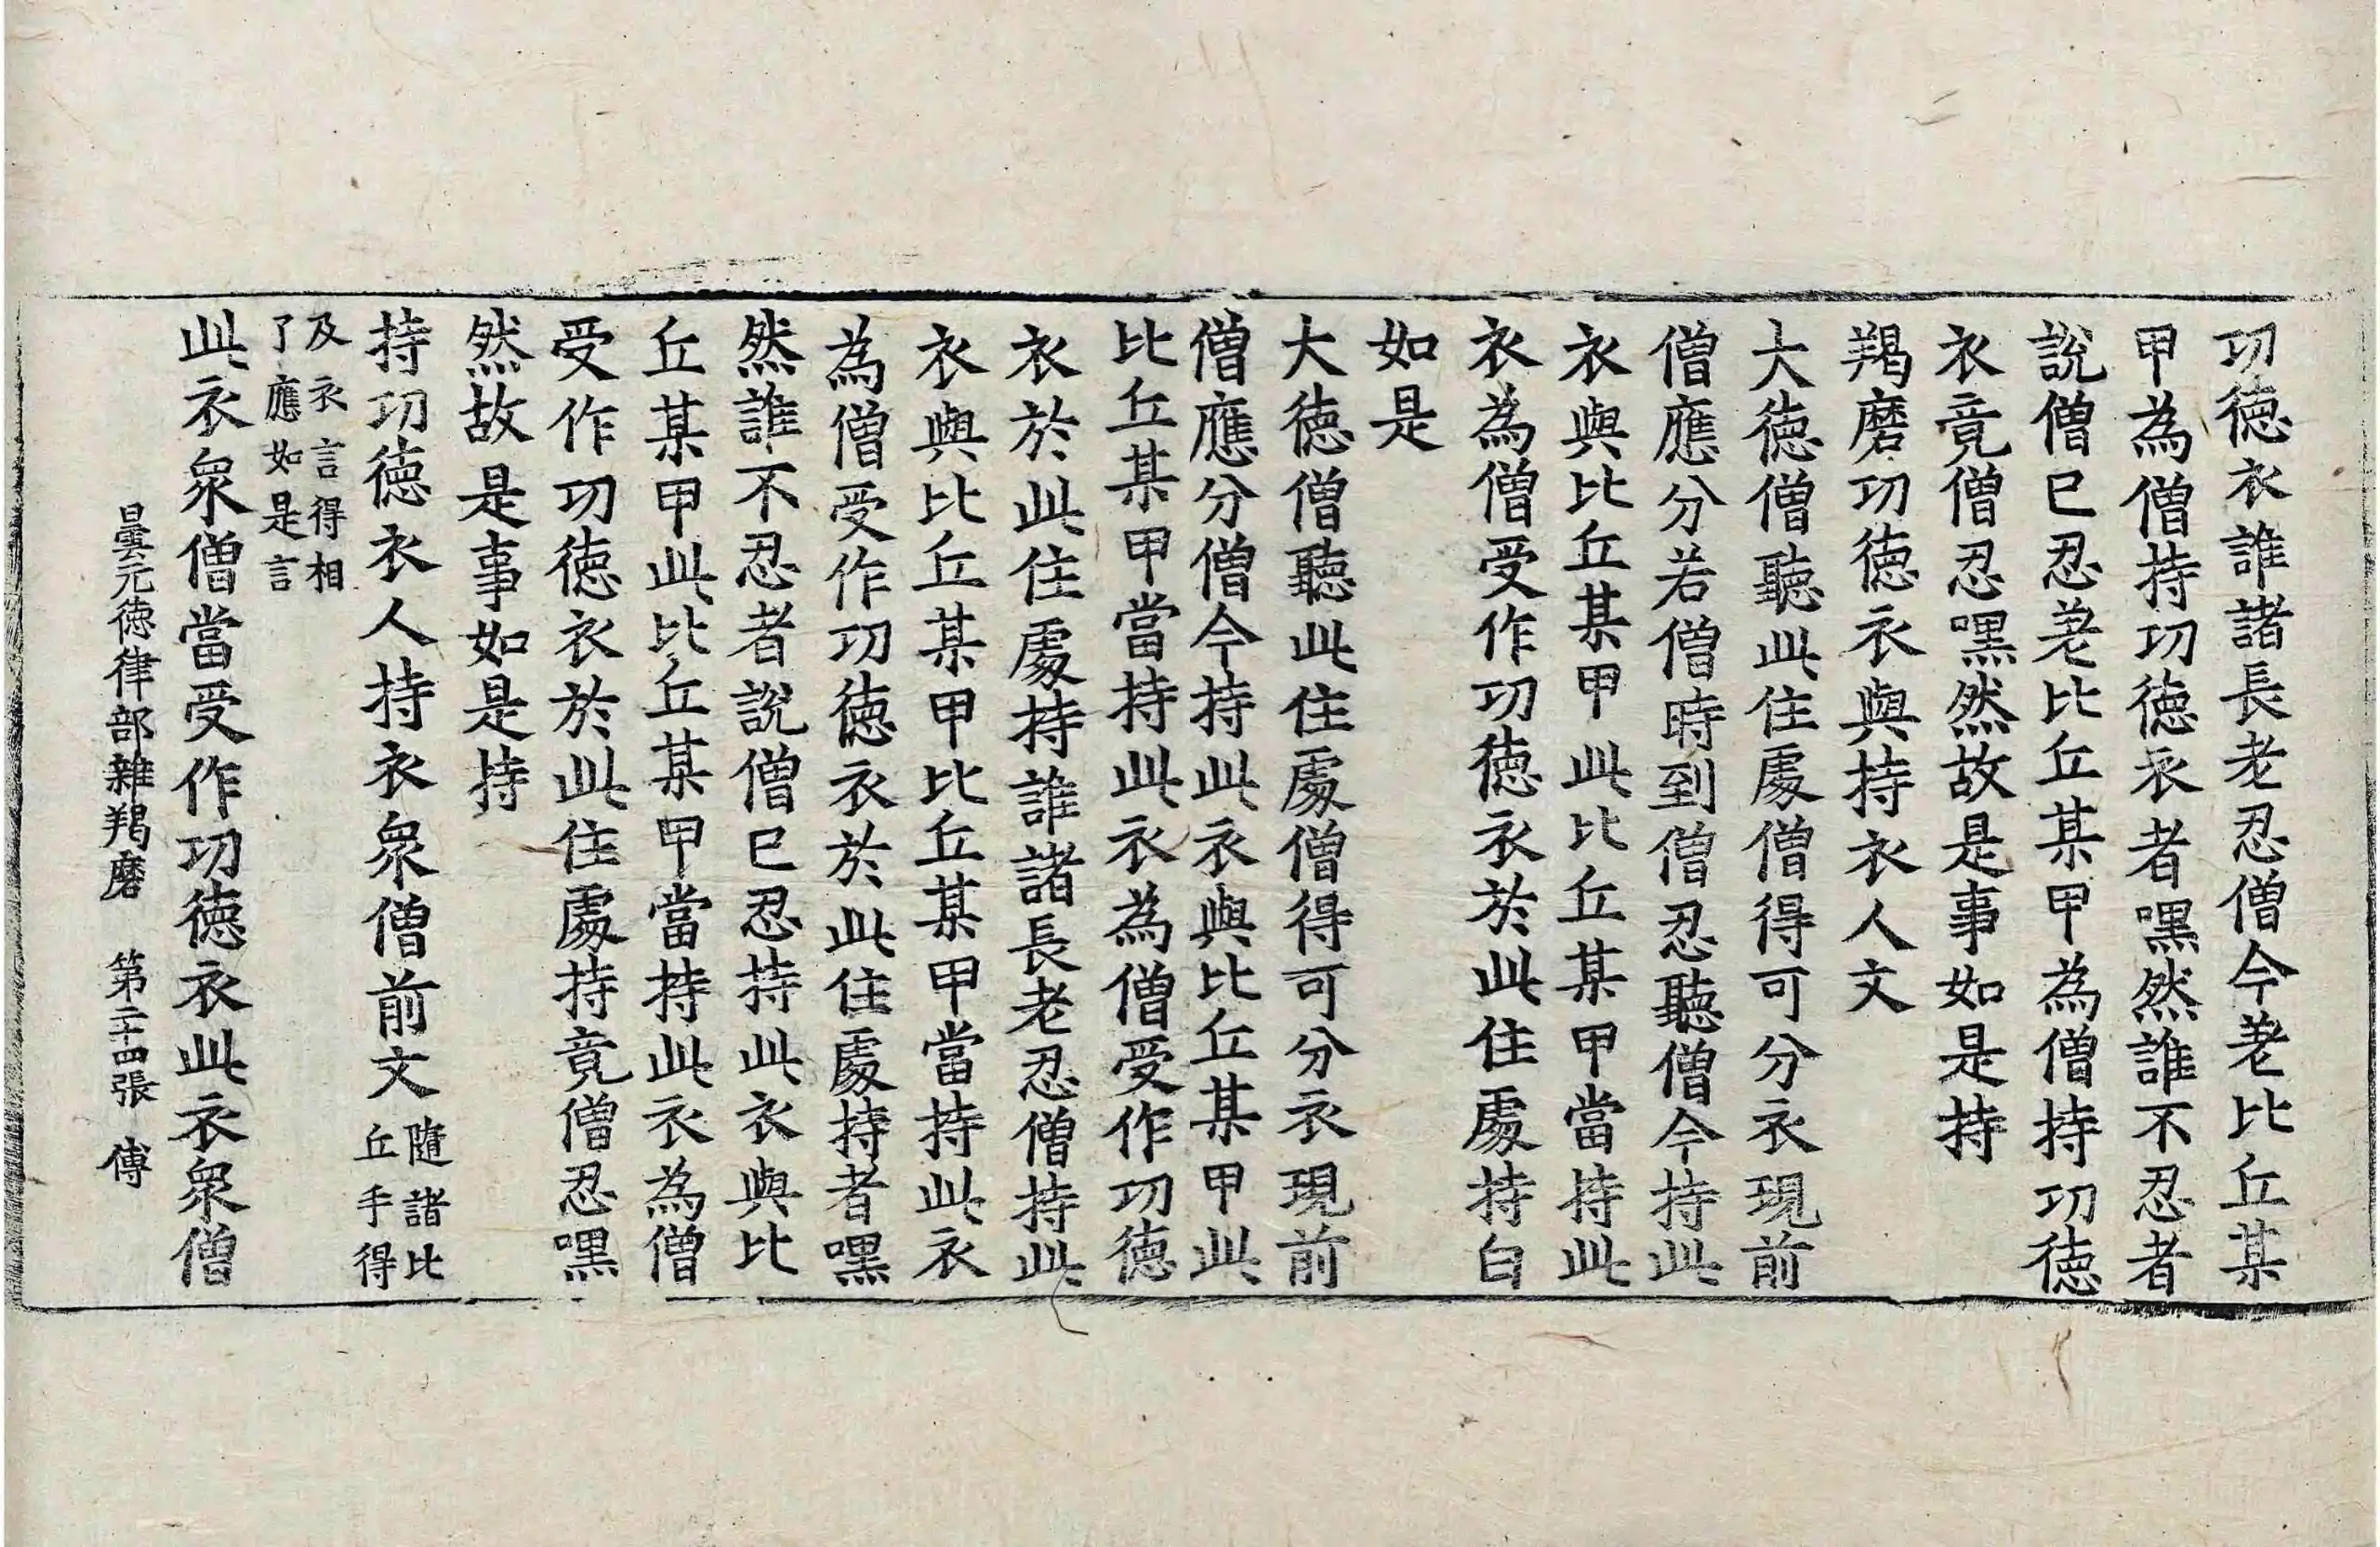 功徳衣誰諸長老忍僧今差比丘某
甲為僧持功徳衣者嘿然誰不忍者
說僧已忍差比丘某甲為僧持功徳
衣竟僧忍嘿然故是事如是持
羯磨功徳衣與持衣人文
大徳僧聽此住處僧得可分衣現前
僧應分若僧時到僧忍聽僧今持此
衣與比丘某甲此比丘某甲當持此
衣為僧受作功徳衣於此住處持白
如是
大徳僧聽此住處僧得可分衣現前
僧應分僧今持此衣與比丘某甲此
比丘某甲當持此衣為僧受作功徳
衣於此住處持誰諸長老忍僧持此
衣與比丘某甲比丘某甲當持此衣
為僧受作功徳衣於此住處持者嘿
然誰不忍者說僧已忍持此衣與比
丘某甲此比丘某甲當持此衣為僧
受作功徳衣於此住處持竟僧忍嘿
然故是事如是持
持功徳衣人持衣衆僧前文隨諸比
丘手得
及衣言得相
了應如是言
此衣衆僧當受作功徳衣此衣衆僧
曇无徳律部雜羯磨 第二十四張 傅